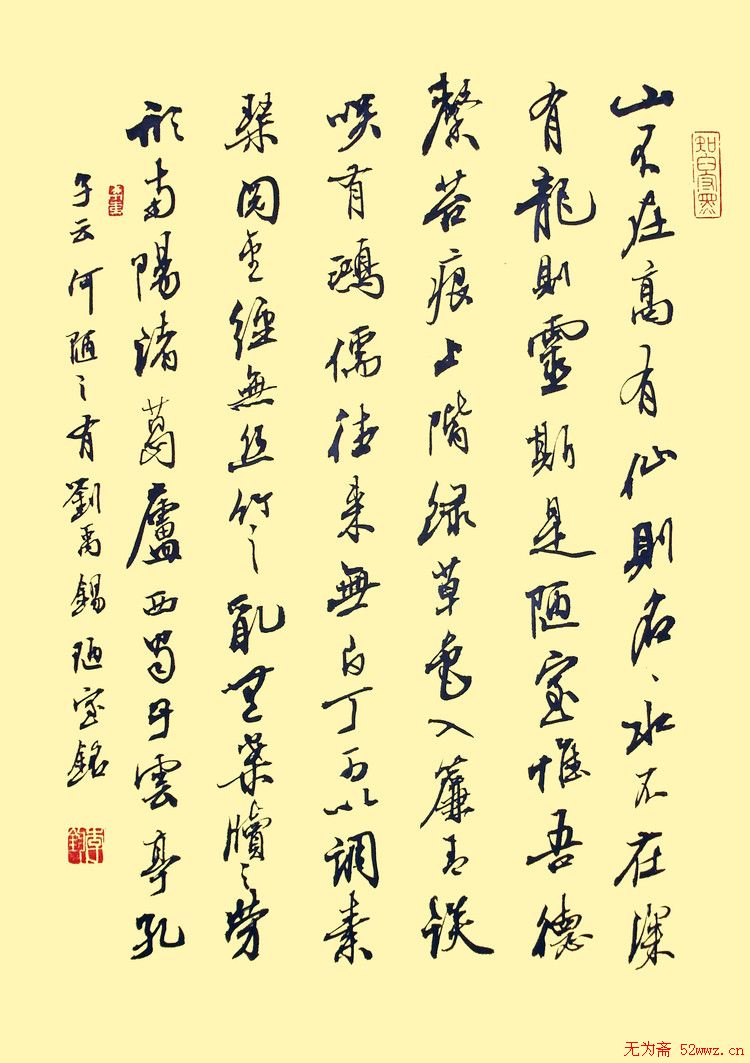 知白守黑
山不在高有仙則名、水不在深
有龍則靈斯是陋室惟吾德
馨苔痕上階緑草色入簾青談
笑有鴻儒往來無白丁可以調素
琴閱金經無丝竹之亂無案牘之勞
形南陽諸葛廬西蜀子雲亭孔
子云何陋之有劉禹錫陋室銘
无为斋 52wwz.cn